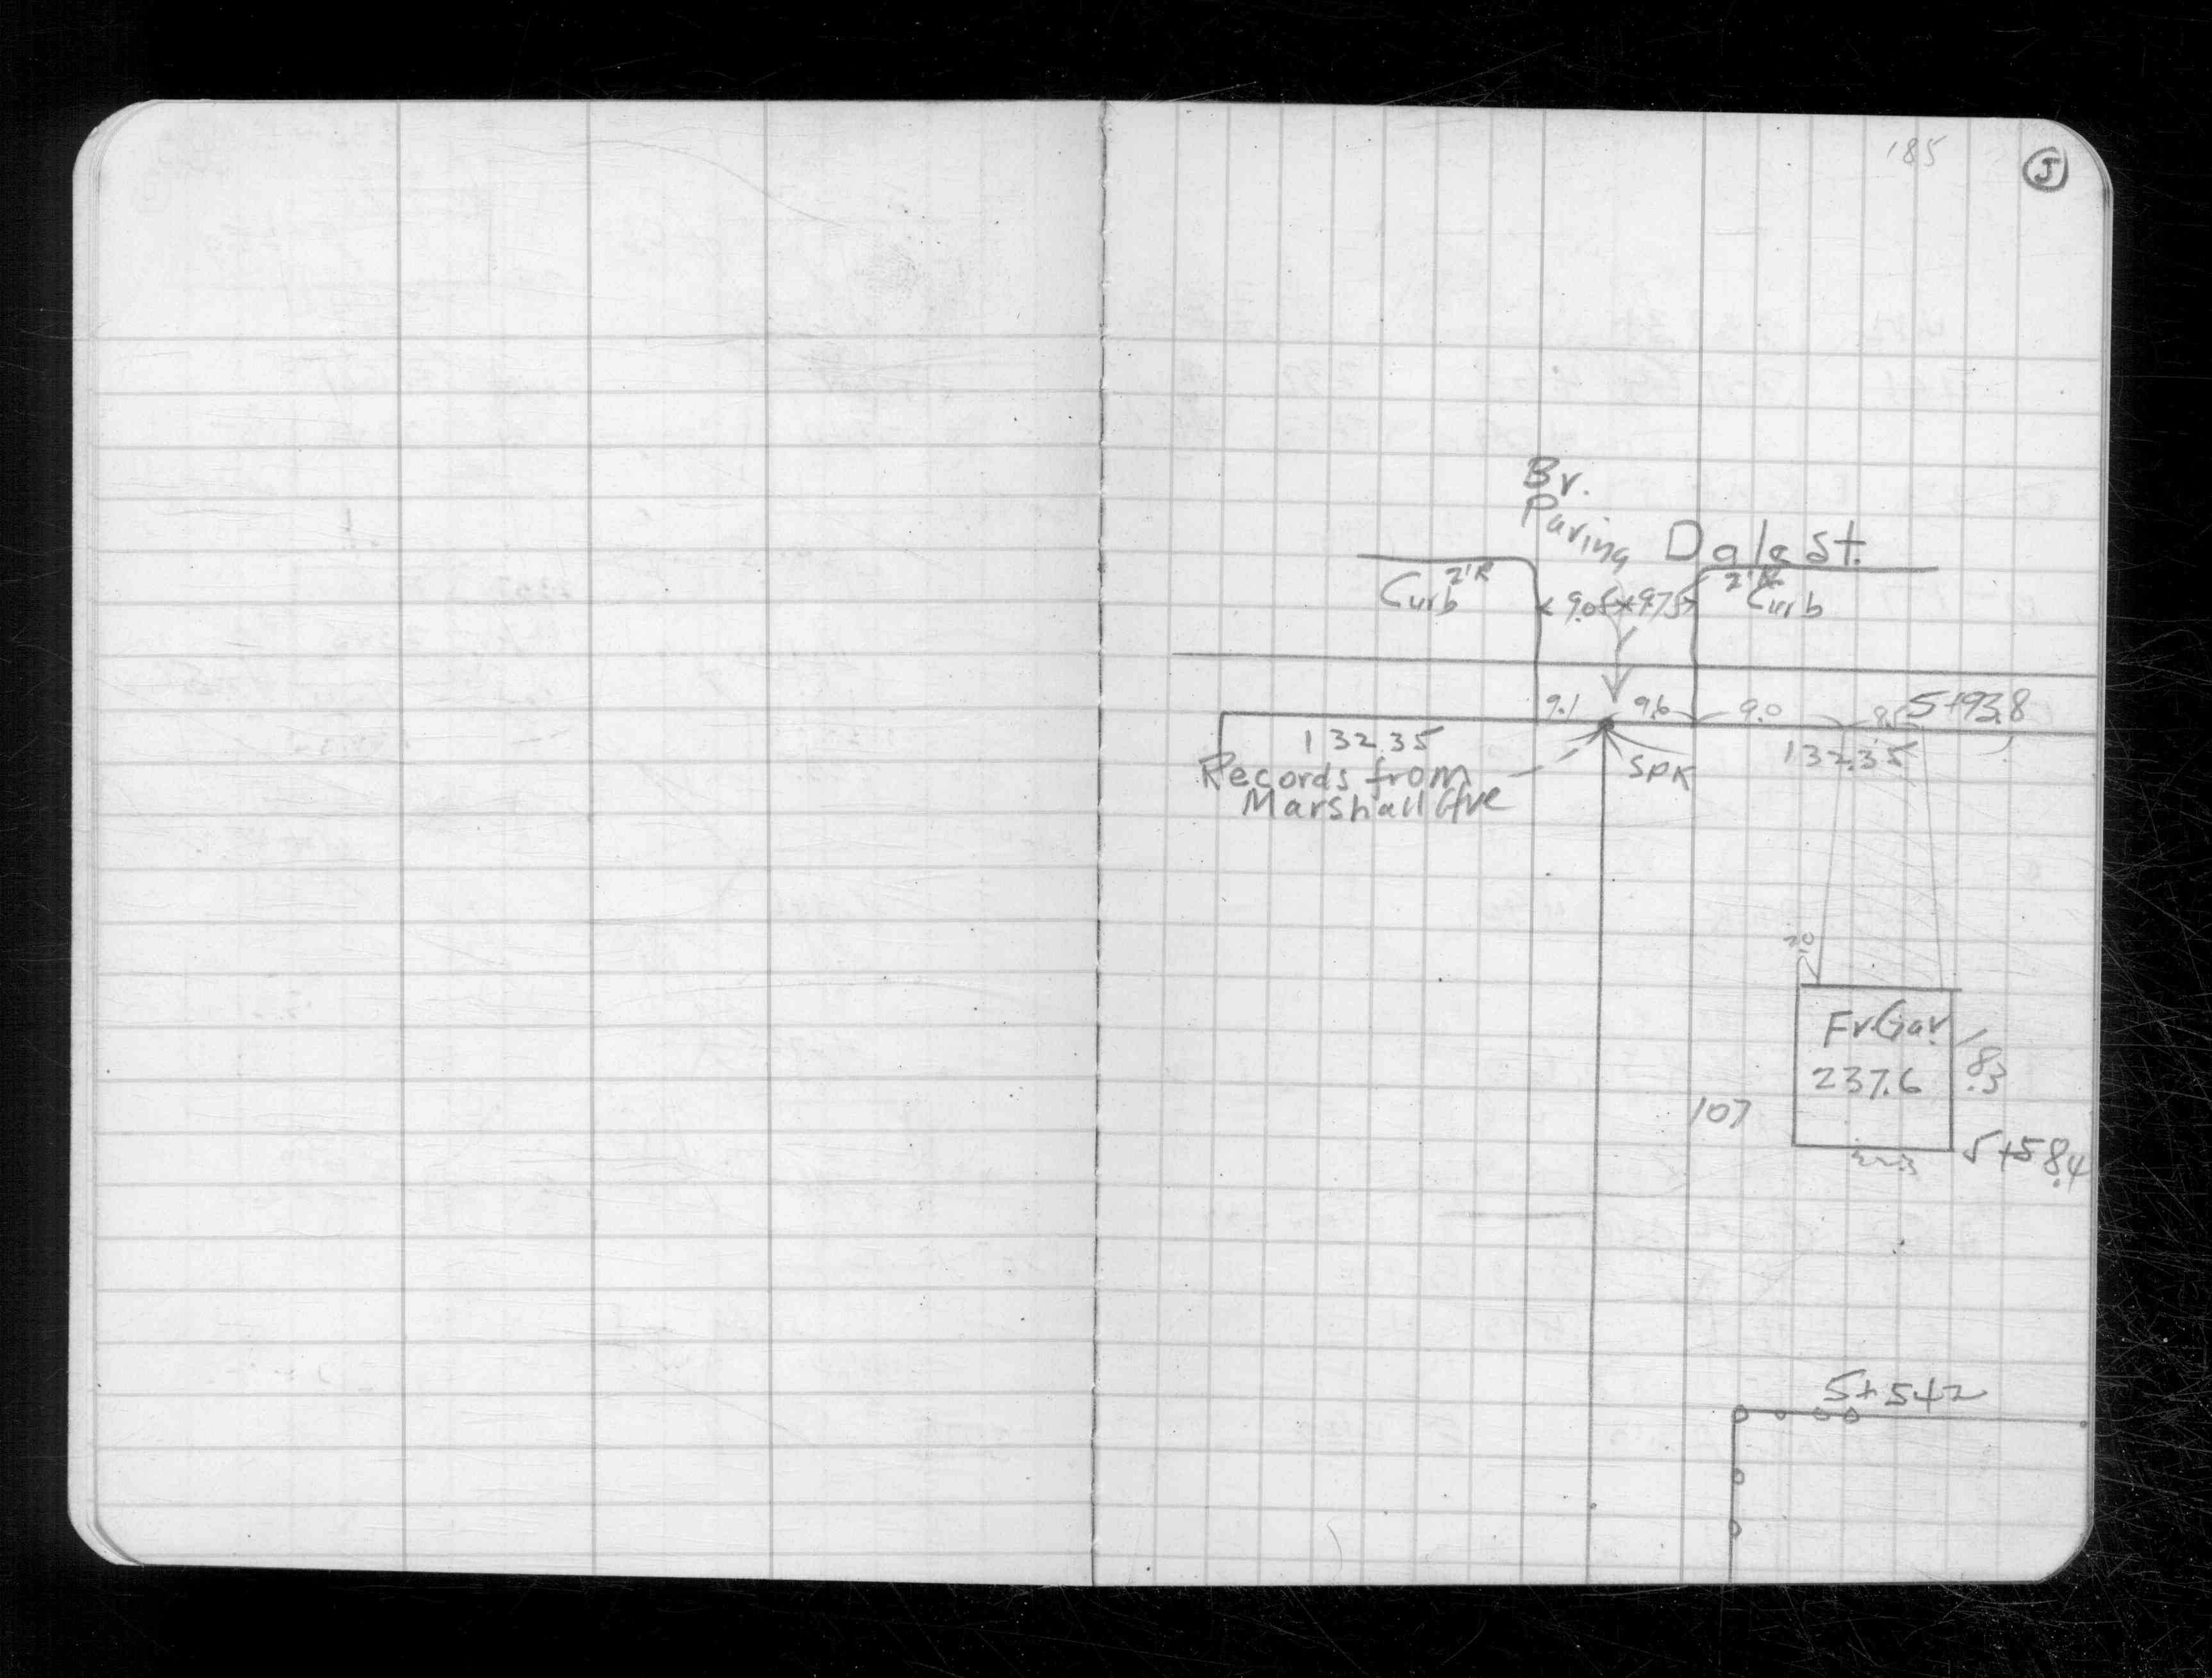 185
5
Br.
Paving
Dale St.
Curb 2'R
9.05 9.75
2'R
Curb
9.1 9.6 9.0 8.5 5+93.8
132.35
132.35
SPK
Records from
Marshall Ave
2.0
Fr. Gar.
237.6
18.3
107
5+58.4
5+54.2